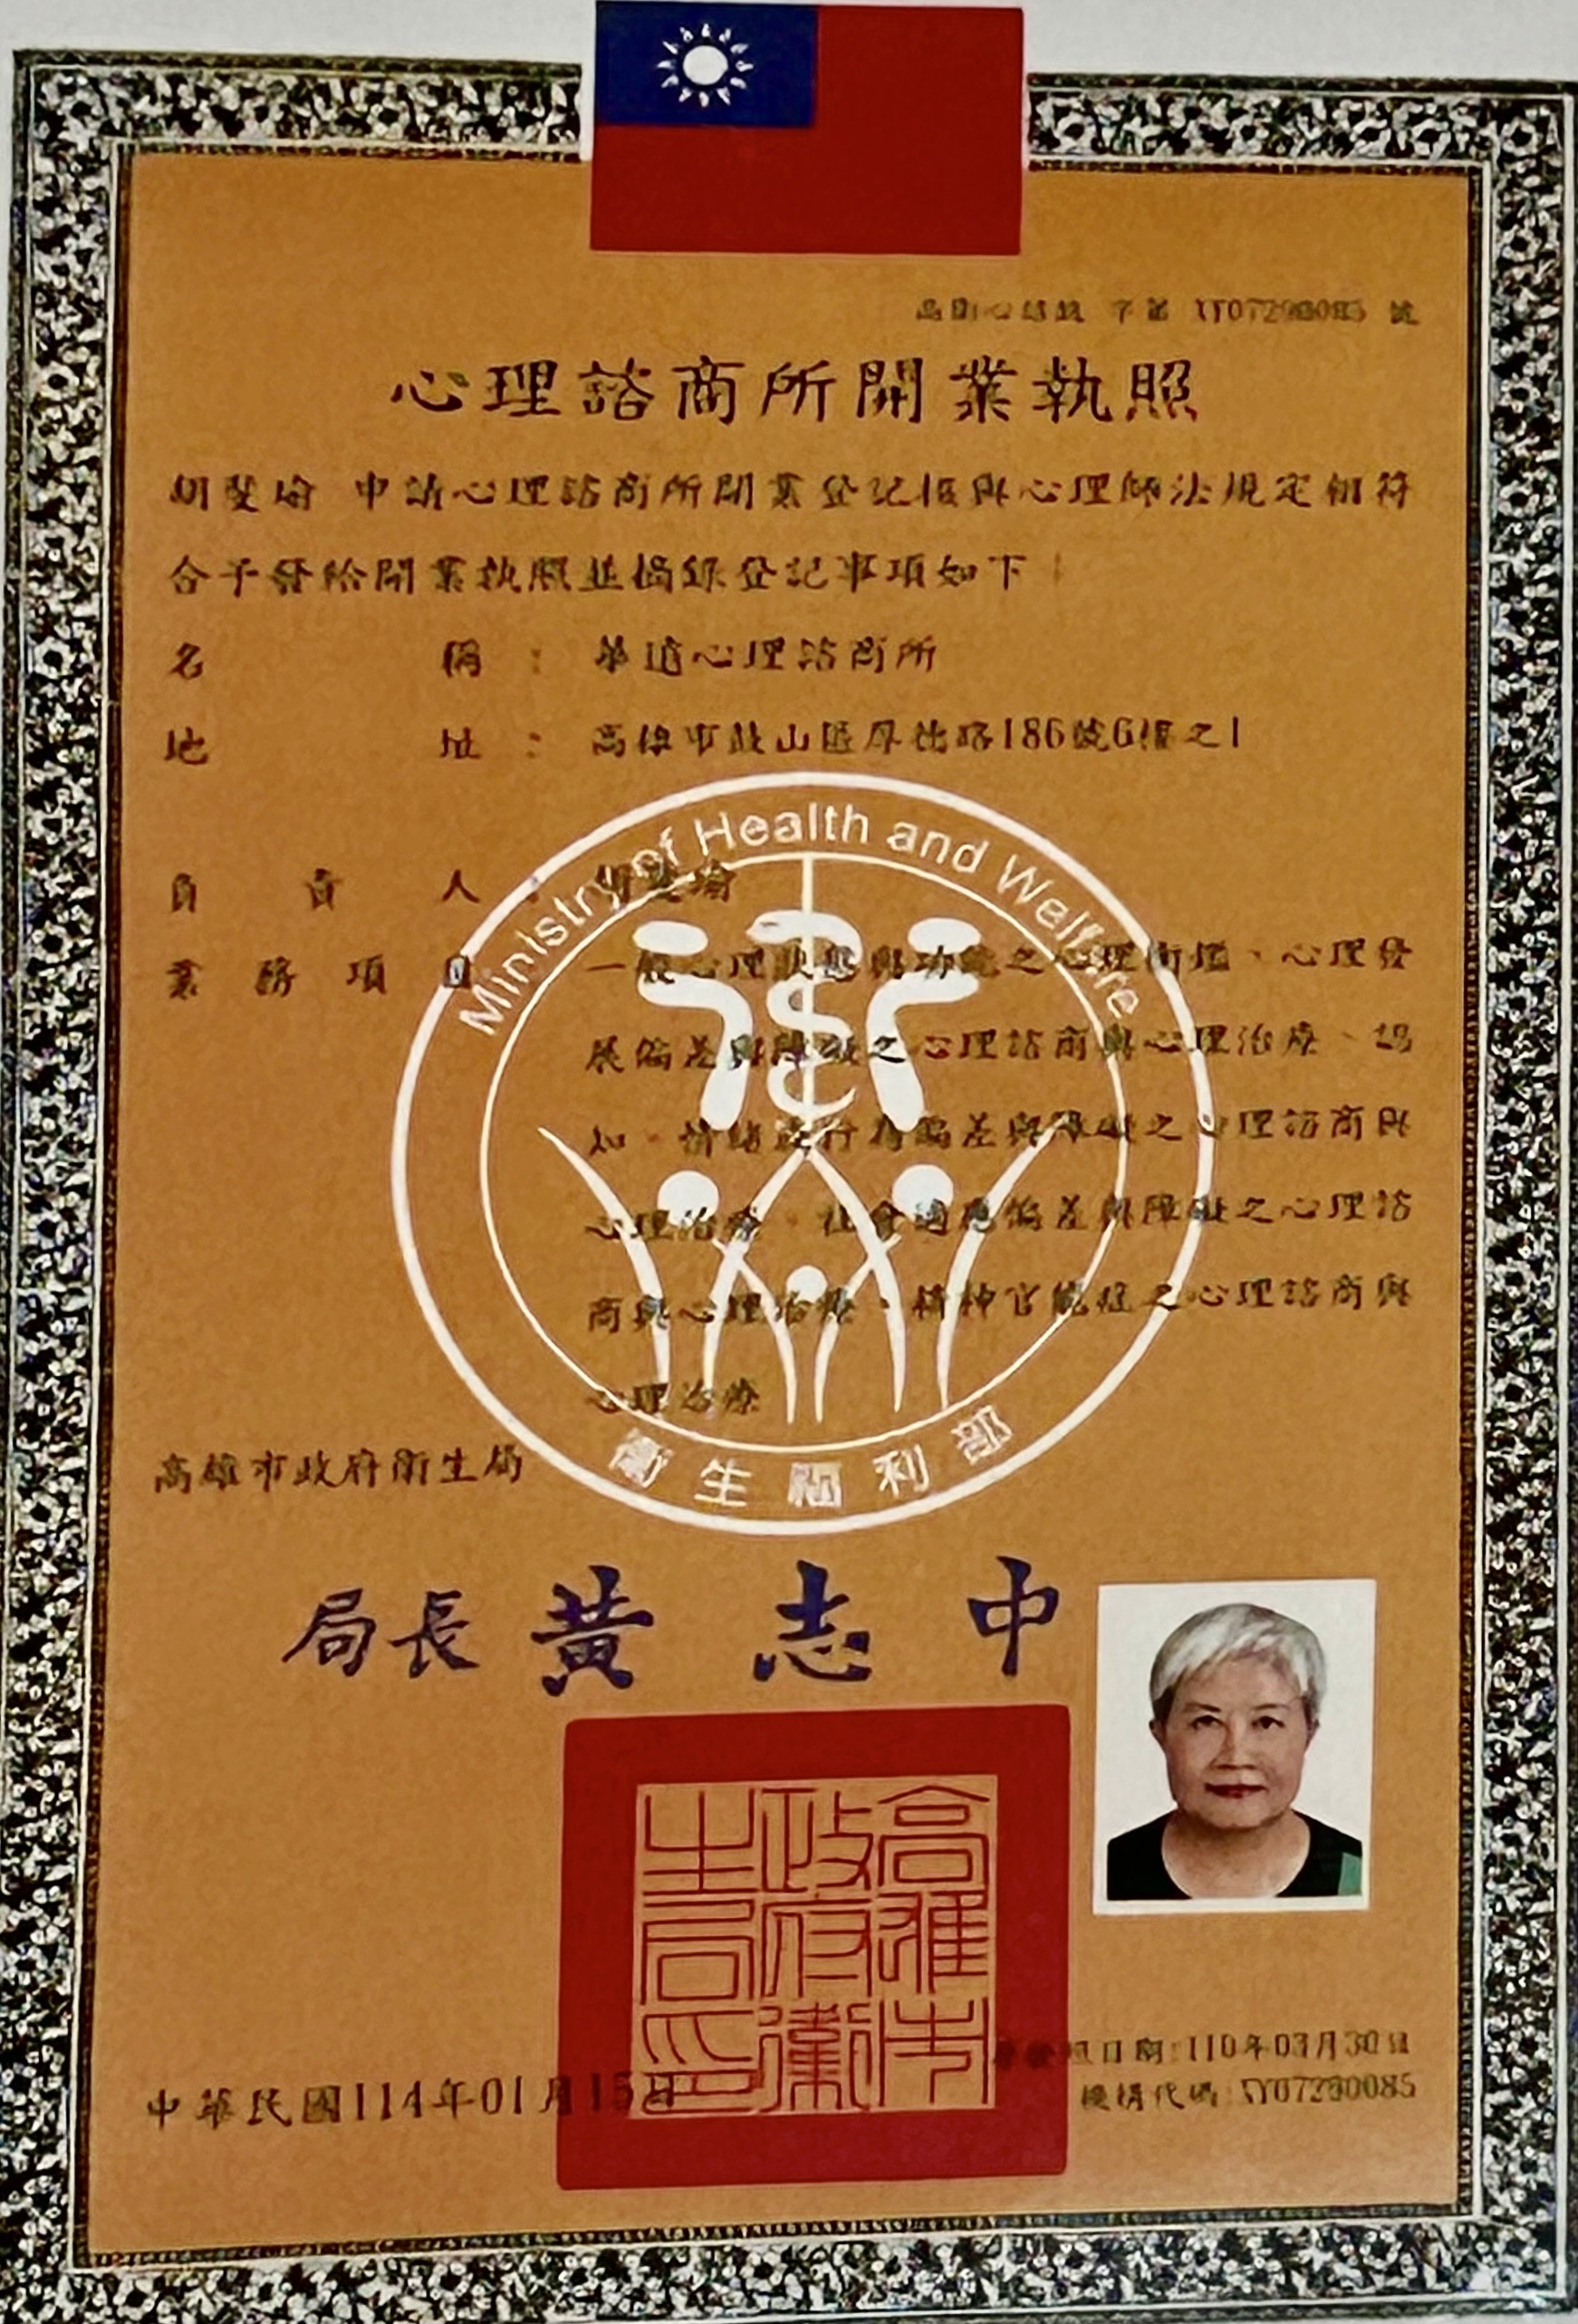 心理諮商所開業執照
申請心理諮商所開業登記核與心理師法規定相符
合予發給開業執照並摘錄登記事項如下：
名稱：心理諮商所
地址：高雄市鼓山區路186號6樓之1
Ministry of Health and Welfare
負責人：
業務項目：一般心理狀態與功能之心理衡鑑、心理發
展偏差與障礙之心理諮商與心理治療、認
知、情緒或行為偏差與障礙之心理諮商與
心理治療、社會適應偏差與障礙之心理諮
商與心理治療、精神官能症之心理諮商與
心理治療
衛生福利部
高雄市政府衛生局
局長 黃志中
高雄市政府衛生局印
原發照日期:110年03月30日
機構代碼:
中華民國114年01月15日